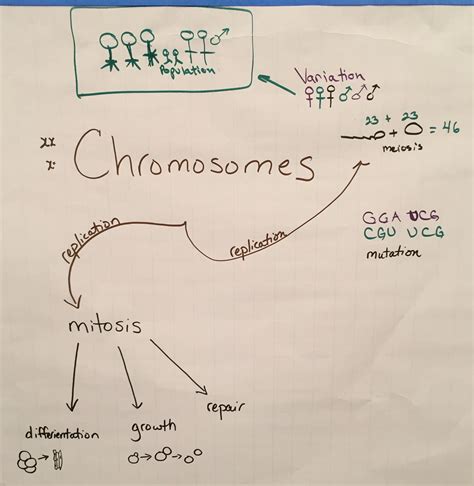 Population
Variation
23 + 23
+ = 46
meiosis
Chromosomes
replication
replication
GGA UCG
CGU UCG
mutation
mitosis
differientation
growth
repair